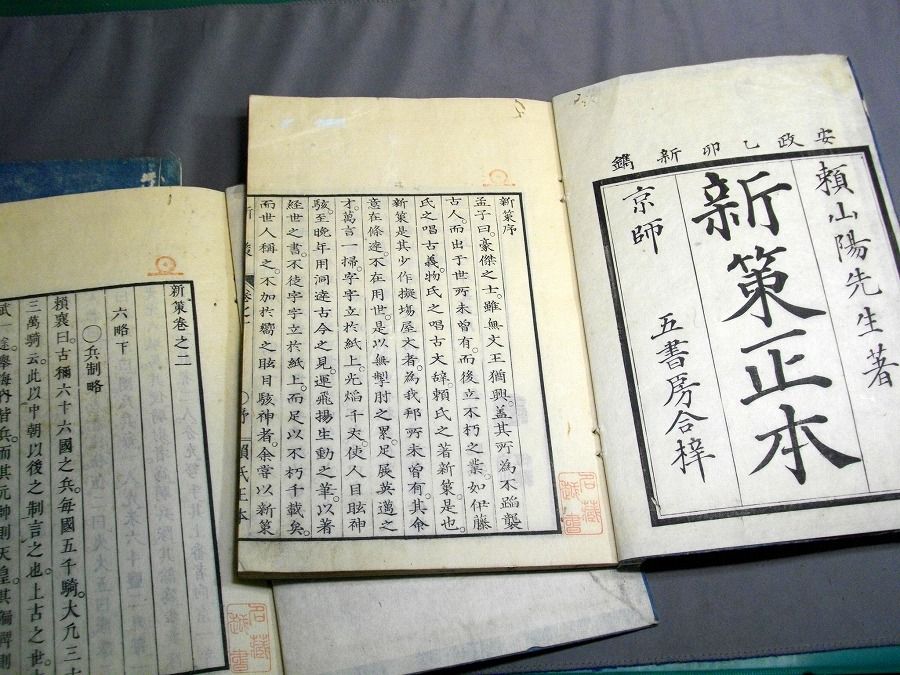 安政乙卯新鐫
頼山陽先生著
新策正本
京師
五書房合梓
新策序
孟子曰。豪傑之士。雖無文王猶興。蓋其所為不蹈襲
古人。而出于世所未曽有。而後立不朽之業。如伊藤
氏之唱古義。物氏之唱古文辞。頼氏之著新策。是也。
新策是其少作擬場屋文者。為我邦所未曽有。其余
意在條達。不在用世。是以無掣肘之累。足展英邁之
才。萬言一掃。字字立於紙上。光焰千丈。使人目眩神
駭。至晩年用洞達古今之見。運飛揚生動之筆。以著
経世之書。不使字字立於紙上。而足以不朽千載矣。
而世人稱之。不加於嚮之眩目駭神者。余嘗以新策
頼氏正本
新策巻之二
六略下
〇兵制略
頼襄曰。古稱六十六國之兵。毎國五千騎。大凡三十
三萬騎云。此以中朝以後之制言之也。上古之世。
武一途。擧海内皆兵。而其元帥則天皇。其偏裨則